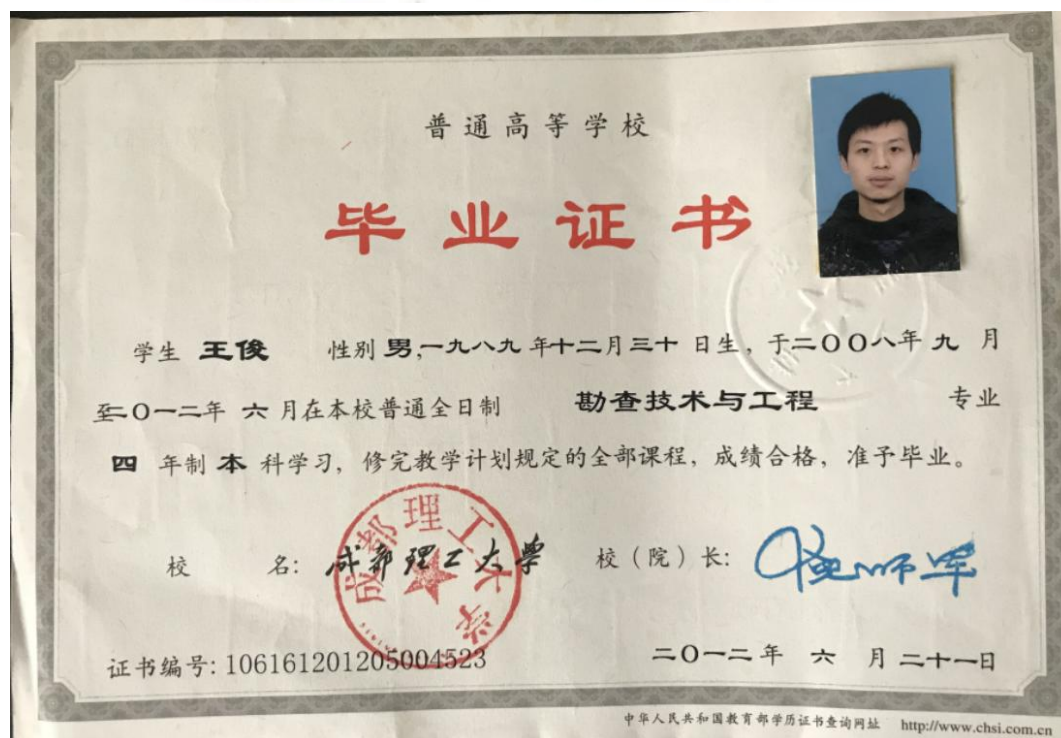 普通高等学校
毕业证书
学生 王俊 性别 男,一九八九 年十二月三十 日生, 于二〇〇八年 九 月
至二〇一二年 六 月在本校普通全日制 勘查技术与工程 专业
四 年制 本 科学习, 修完教学计划规定的全部课程, 成绩合格, 准予毕业。
成都理工大学
校 名: 成都理工大学 校(院)长:
证书编号: 106161201205004523 二〇一二 年 六 月 二十一日
中华人民共和国教育部学历证书查询网址 http://www.chsi.com.cn